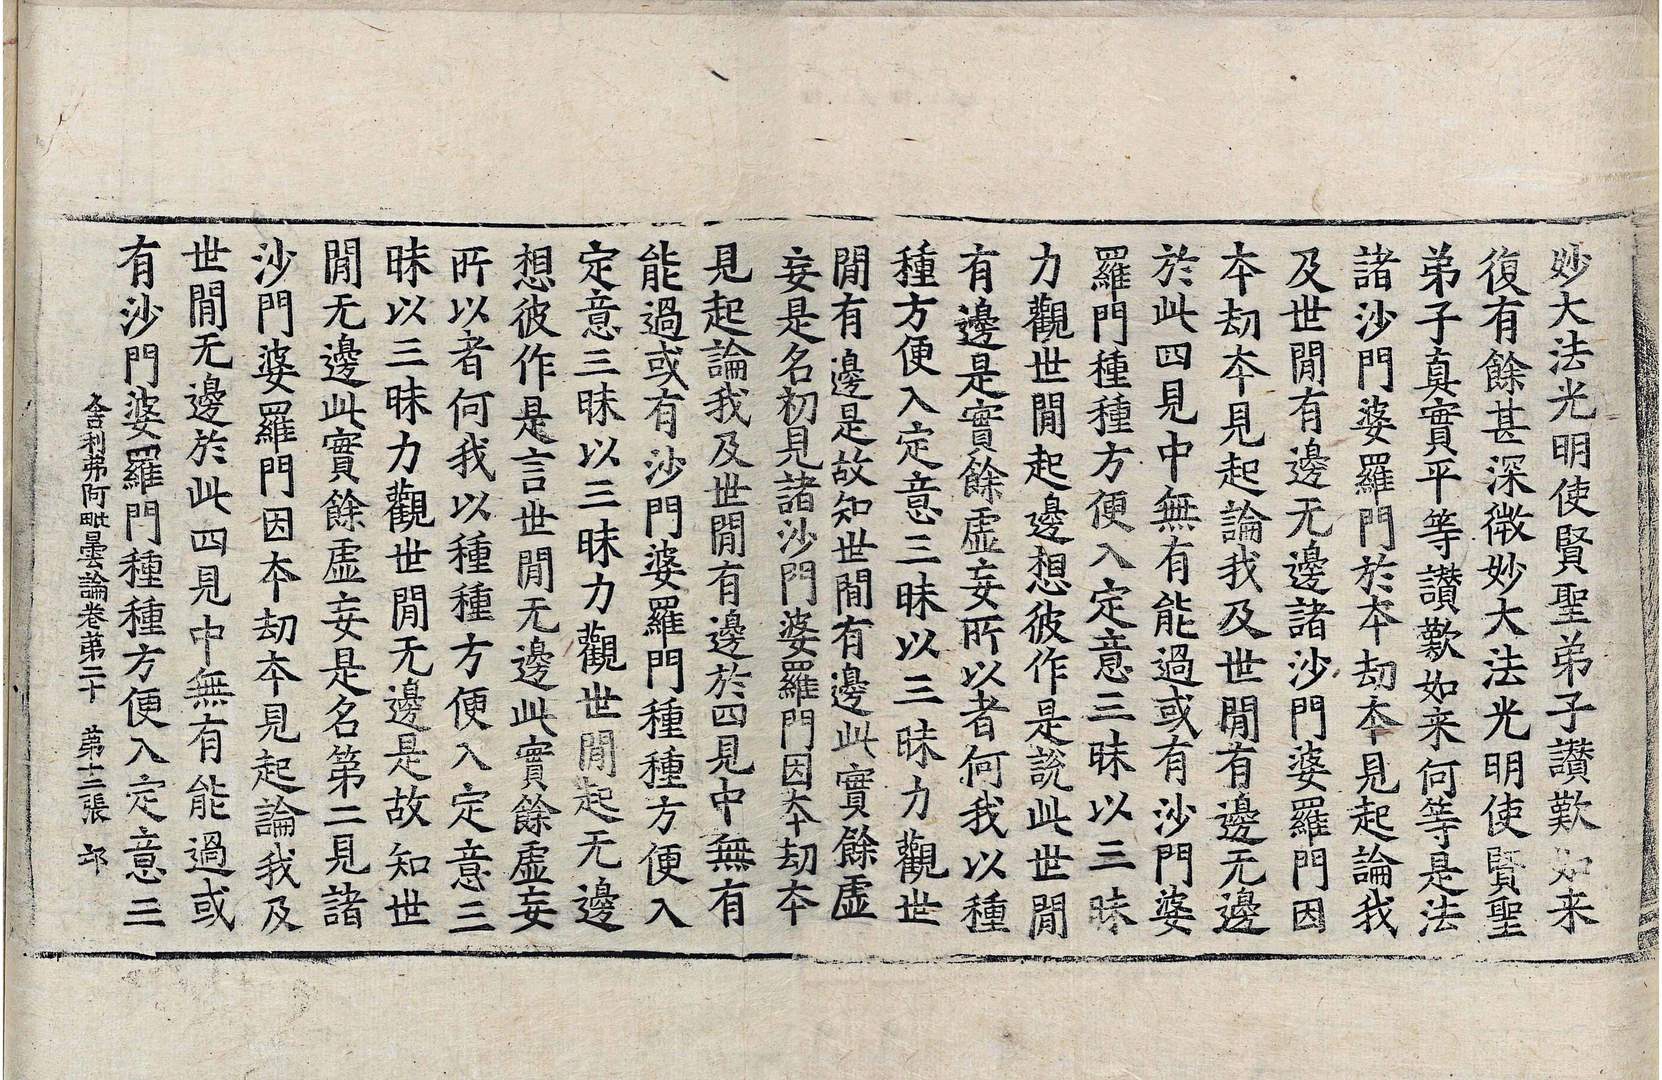 妙大法光明使賢聖弟子讃歎如来
復有餘甚深微妙大法光明使賢聖
弟子真實平等讃歎如来何等是法
諸沙門婆羅門於夲劫夲見起論我
及世閒有邊无邊諸沙門婆羅門因
夲劫夲見起論我及世閒有邊无邊
於此四見中無有能過或有沙門婆
羅門種種方便入定意三昧以三昧
力觀世閒起邊想彼作是說此世閒
有邊是實餘虛妄所以者何我以種
種方便入定意三昧以三昧力觀世
閒有邊是故知世閒有邊此實餘虛
妄是名初見諸沙門婆羅門因夲劫夲
見起論我及世閒有邊於四見中無有
能過或有沙門婆羅門種種方便入
定意三昧以三昧力觀世閒起无邊
想彼作是言世閒无邊此實餘虛妄
所以者何我以種種方便入定意三
昧以三昧力觀世閒无邊是故知世
閒无邊此實餘虛妄是名第二見諸
沙門婆羅門因夲劫夲見起論我及
世閒无邊於此四見中無有能過或
有沙門婆羅門種種方便入定意三
舎利弗阿毗曇論卷第二十　第十二張　邙